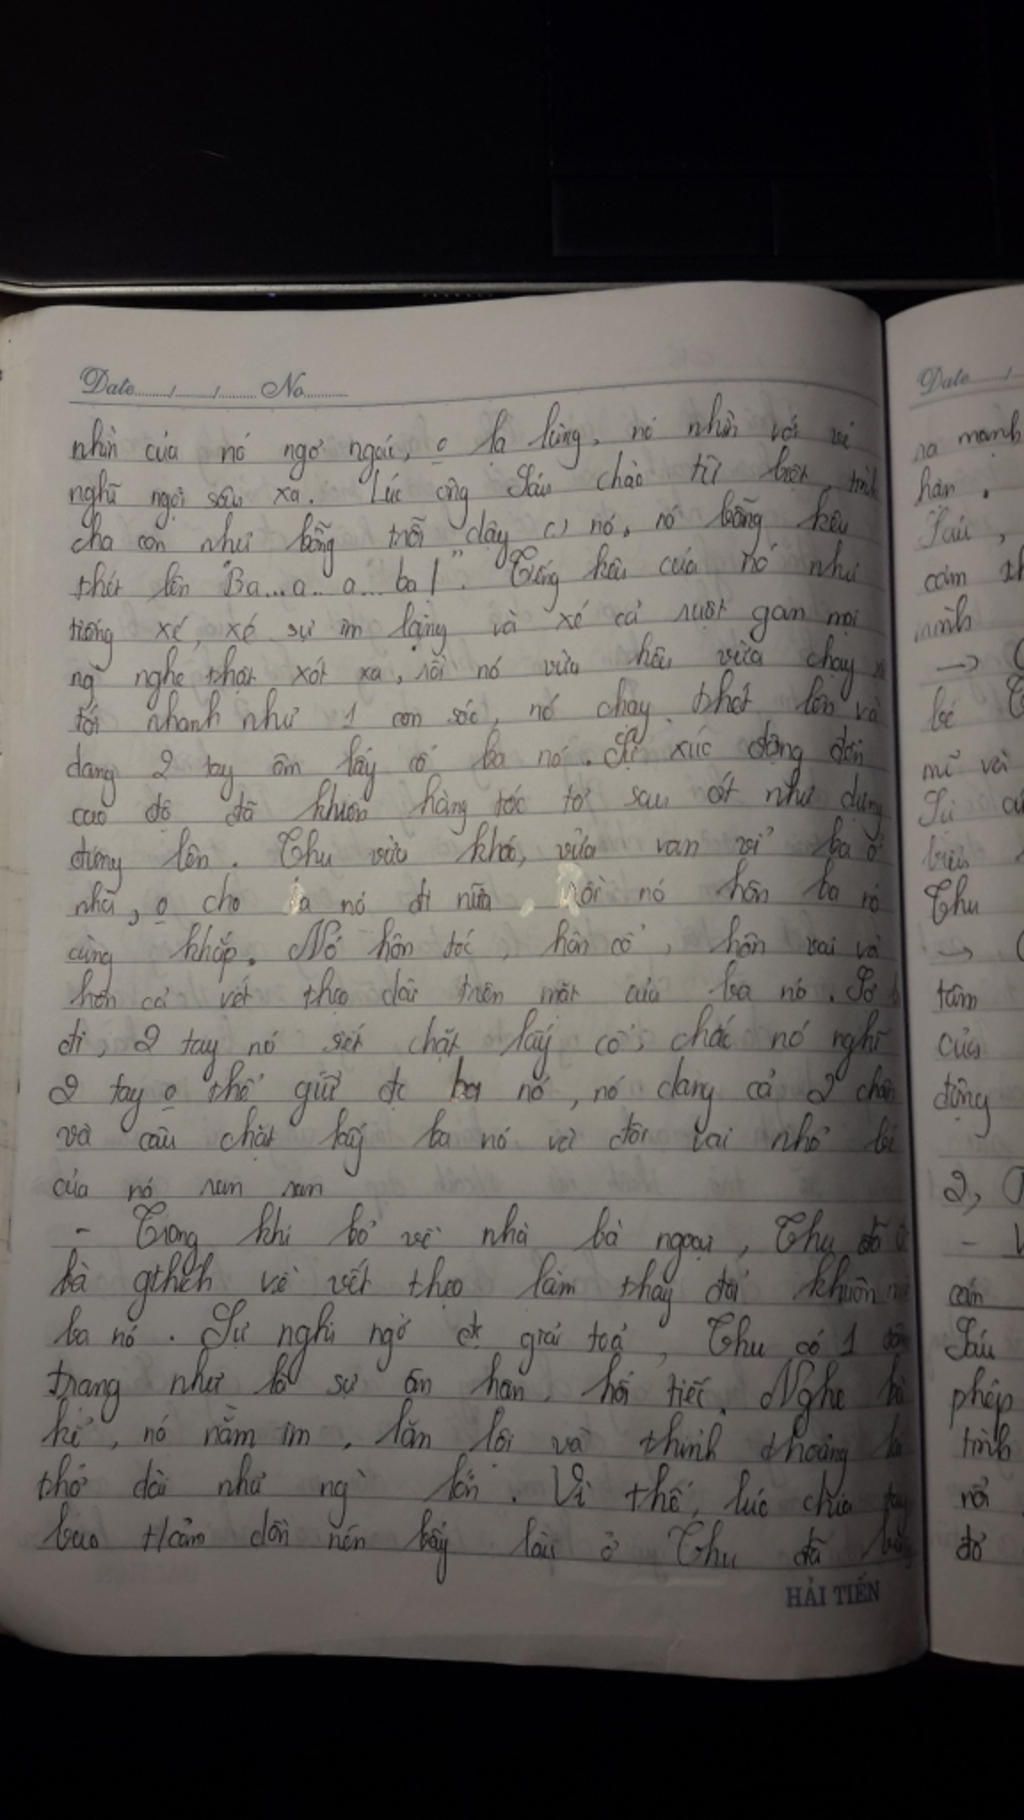 Date....../......./........ No..........
nhìn của nó ngơ ngác, o lạ lùng, nó nhìn với vẻ
nghĩ ngợi sâu xa. Lúc ông Sáu chào từ biệt, tình
cha con như bỗng trỗi dậy nó, nó bỗng kêu
thét lên "Ba...a..a...ba!". Tiếng kêu của nó như
tiếng xé, xé sự im lặng và xé cả ruột gan mọi
ng` nghe thật xót xa, rồi nó vừa kêu vừa chạy
tới nhanh như 1 con sóc, nó chạy thót lên và
dang 2 tay ôm lấy cổ ba nó. Sự xúc động đến
cao độ đã khiến hàng tóc tơ sau ót như dựng
đứng lên. Thu vừa khóc, vừa van xin ba ở
nhà, o cho ba nó đi nữa, Rồi nó hôn ba nó
cùng khắp. Nó hôn tóc, hôn cổ, hôn vai và
hôn cả vết thẹo dài trên mặt của ba nó. Sợ
đi, 2 tay nó siết chặt lấy cổ, chắc nó nghĩ
2 tay o thể giữ đc ba nó, nó dang cả 2 chân
và câu chặt lấy ba nó và đôi vai nhỏ bé
của nó run run
- Trong khi bỏ về nhà bà ngoại, Thu đã
bà gthích về vết thẹo làm thay đổi khuôn
ba nó. Sự nghi ngờ đc giải toả, Thu có 1
trạng như là sự ân hận, hối tiếc. Nghe bà
kể, nó nằm im, lăn lộn và thỉnh thoảng
thở dài như ng` lớn. Vì thế, lúc chia tay
bao t/cảm dồn nén bấy lâu ở Thu đã
HẢI TIẾN
Date
ra mạnh
hận.
Sáu,
cảm
mình
→
bé
mẽ và
Thu
→
tâm
của
động
2,
-
Sáu
phép
tình
đỏ